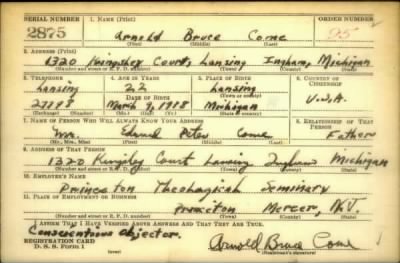 SERIAL NUMBER 1. NAME (Print) ORDER NUMBER
2875 Arnold Bruce Come 25
(First) (Middle) (Last)
2. ADDRESS (Print)
1320 Kingsley Court, Lansing Ingham, Michigan
(Number and street or R. F. D. number) (Town) (County) (State)
3. TELEPHONE 4. AGE IN YEARS 5. PLACE OF BIRTH 6. COUNTRY OF CITIZENSHIP
Lansing 22 Lansing
DATE OF BIRTH (Town or county)
March 9, 1918 Michigan U.S.A.
(Exchange) (Number) (Mo.) (Day) (Yr.) (State or country)
7. NAME OF PERSON WHO WILL ALWAYS KNOW YOUR ADDRESS 8. RELATIONSHIP OF THAT PERSON
Mr. Peter Come Father
(Mr., Mrs., Miss) (First) (Middle) (Last)
9. ADDRESS OF THAT PERSON
1320 Kingsley Court Lansing Ingham Michigan
(Number and street or R. F. D. number) (Town) (County) (State)
10. EMPLOYER'S NAME
Princeton Theological Seminary
11. PLACE OF EMPLOYMENT OR BUSINESS
Princeton Mercer, N.J.
(Number and street or R. F. D. number) (Town) (County) (State)
I AFFIRM THAT I HAVE VERIFIED ABOVE ANSWERS AND THAT THEY ARE TRUE.
Conscientious Objector.
REGISTRATION CARD
D. S. S. Form 1 Arnold Bruce Come
(Registrant's signature)